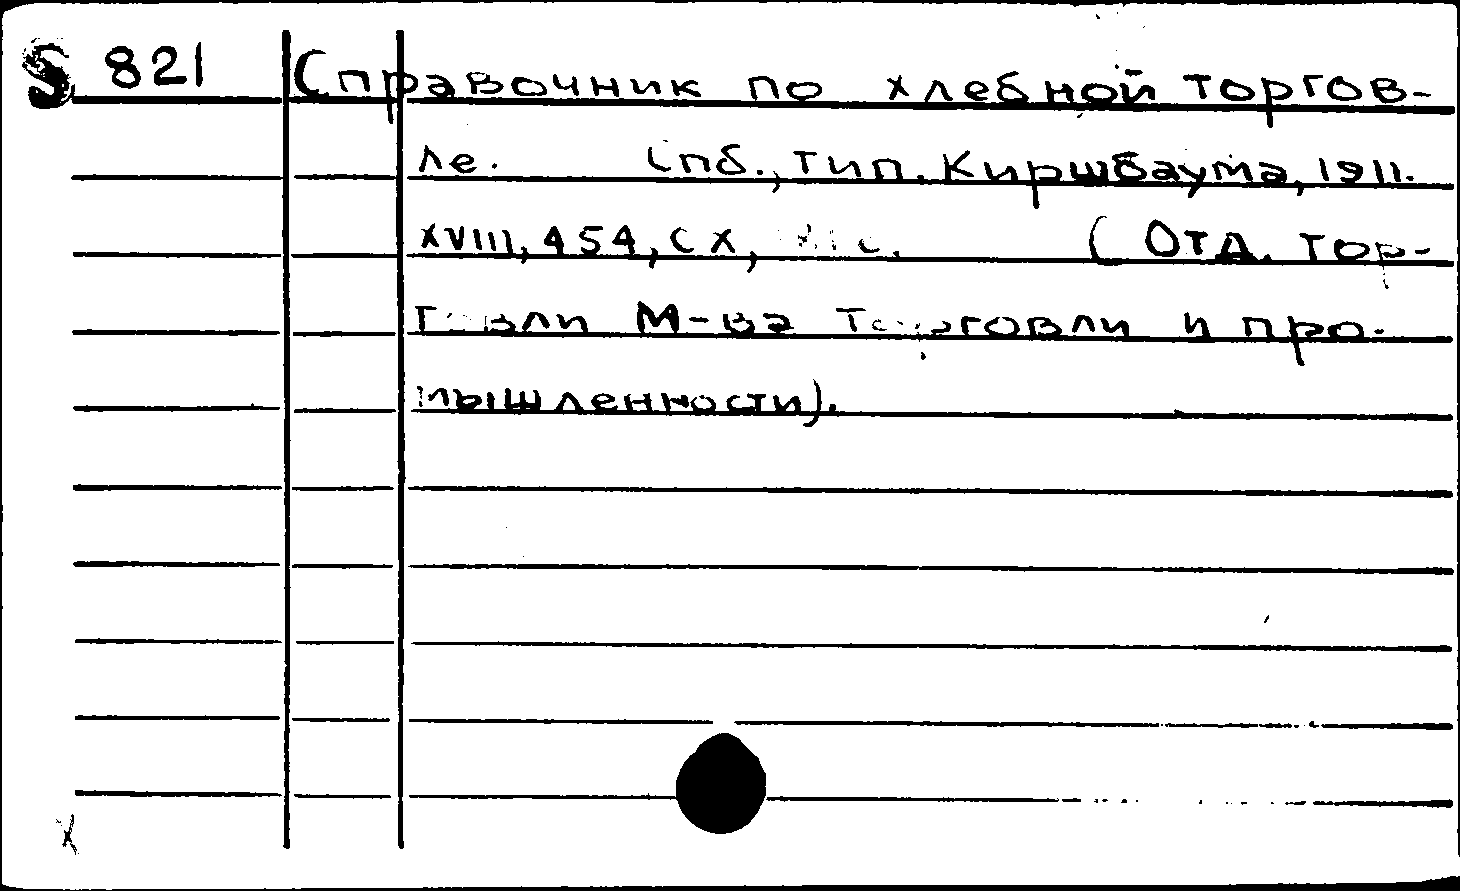 S 821 Справочник по хлебной торгов-
ле. Спб., тип. Киршбаума, 1911.
XVIII, 454, CX, с. (Отд. тор-
говли М-ва Торговли и про-
мышленности).
X